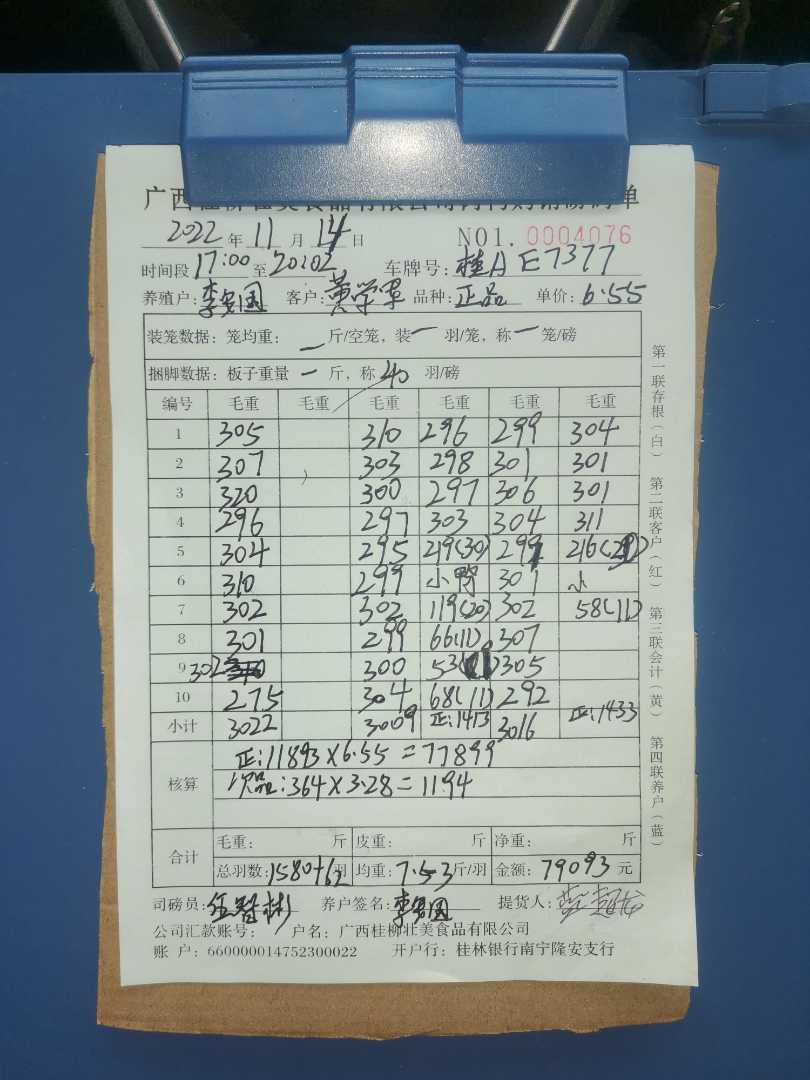 2022 年 11 月 14 日 NO1. 0004076
时间段 17:00 至 20:02 车牌号: 桂A E7377
养殖户: 李安国 客户: 黄学军 品种: 正品 单价: 6.55
装笼数据: 笼均重: — 斤/空笼, 装 — 羽/笼, 称 — 笼/磅
捆脚数据: 板子重量 — 斤, 称 40 羽/磅
编号 毛重 毛重 毛重 毛重 毛重 毛重
1 305 310 296 299 304
2 307 303 298 301 301
3 320 300 297 306 301
4 296 297 303 304 311
5 304 295 219(30) 299 216(29)
6 310 299 小鸭 301 小
7 302 302 119(20) 302 58(11)
8 301 299 66(11) 307
9 302 300 53 305
10 275 304 68(11) 292
小计 3022 3009 正:1413 3016 正:1433
核算 正:11893×6.55=77899
次品:364×3.28=1194
合计 毛重: 斤 皮重: 斤 净重: 斤
总羽数: 1580+62 羽 均重: 7.53 斤/羽 金额: 79093 元
司磅员: 伍智彬 养户签名: 李安国 提货人:
公司汇款账号: 户名: 广西桂柳壮美食品有限公司
账 户: 660000014752300022 开户行: 桂林银行南宁隆安支行
第一联存根(白) 第二联客户(红) 第三联会计(黄) 第四联养户(蓝)